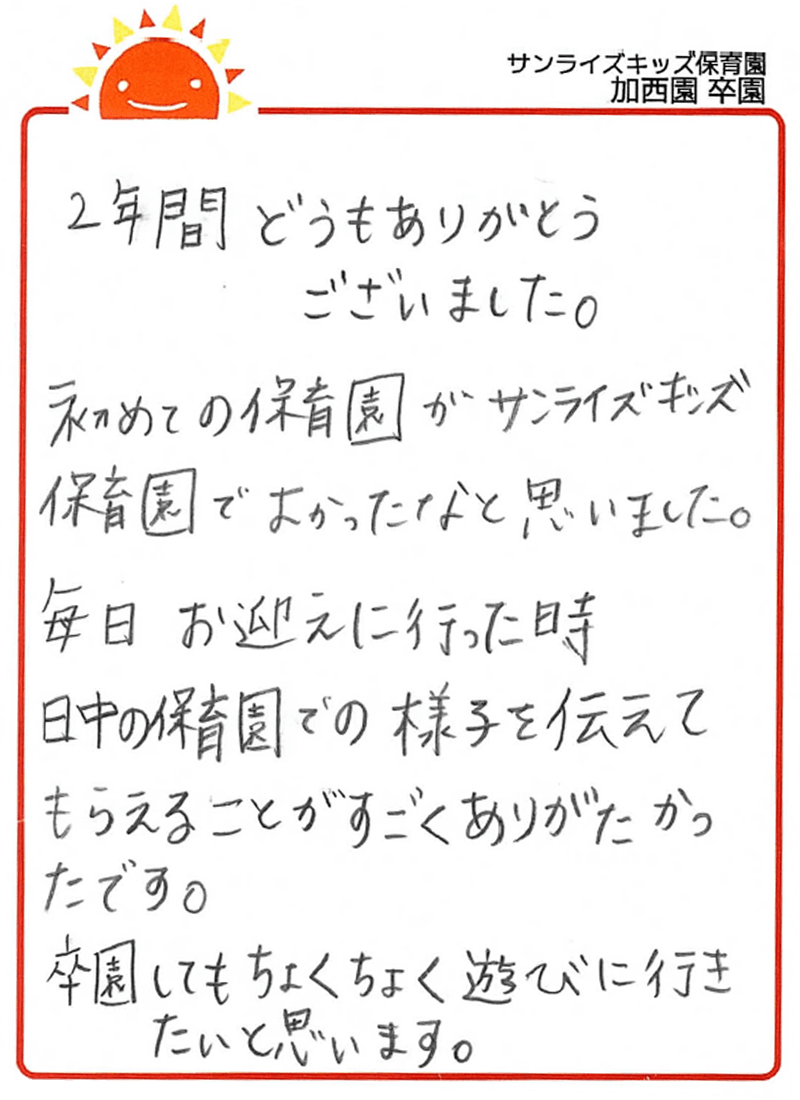 サンライズキッズ保育園
加西園 卒園
2年間 どうもありがとう
ございました。
初めての保育園が サンライズキッズ
保育園で よかったなと思いました。
毎日 お迎えに行った時
日中の保育園での 様子を伝えて
もらえることがすごくありがたかっ
たです。
卒園してもちょくちょく遊びに行き
たいと思います。